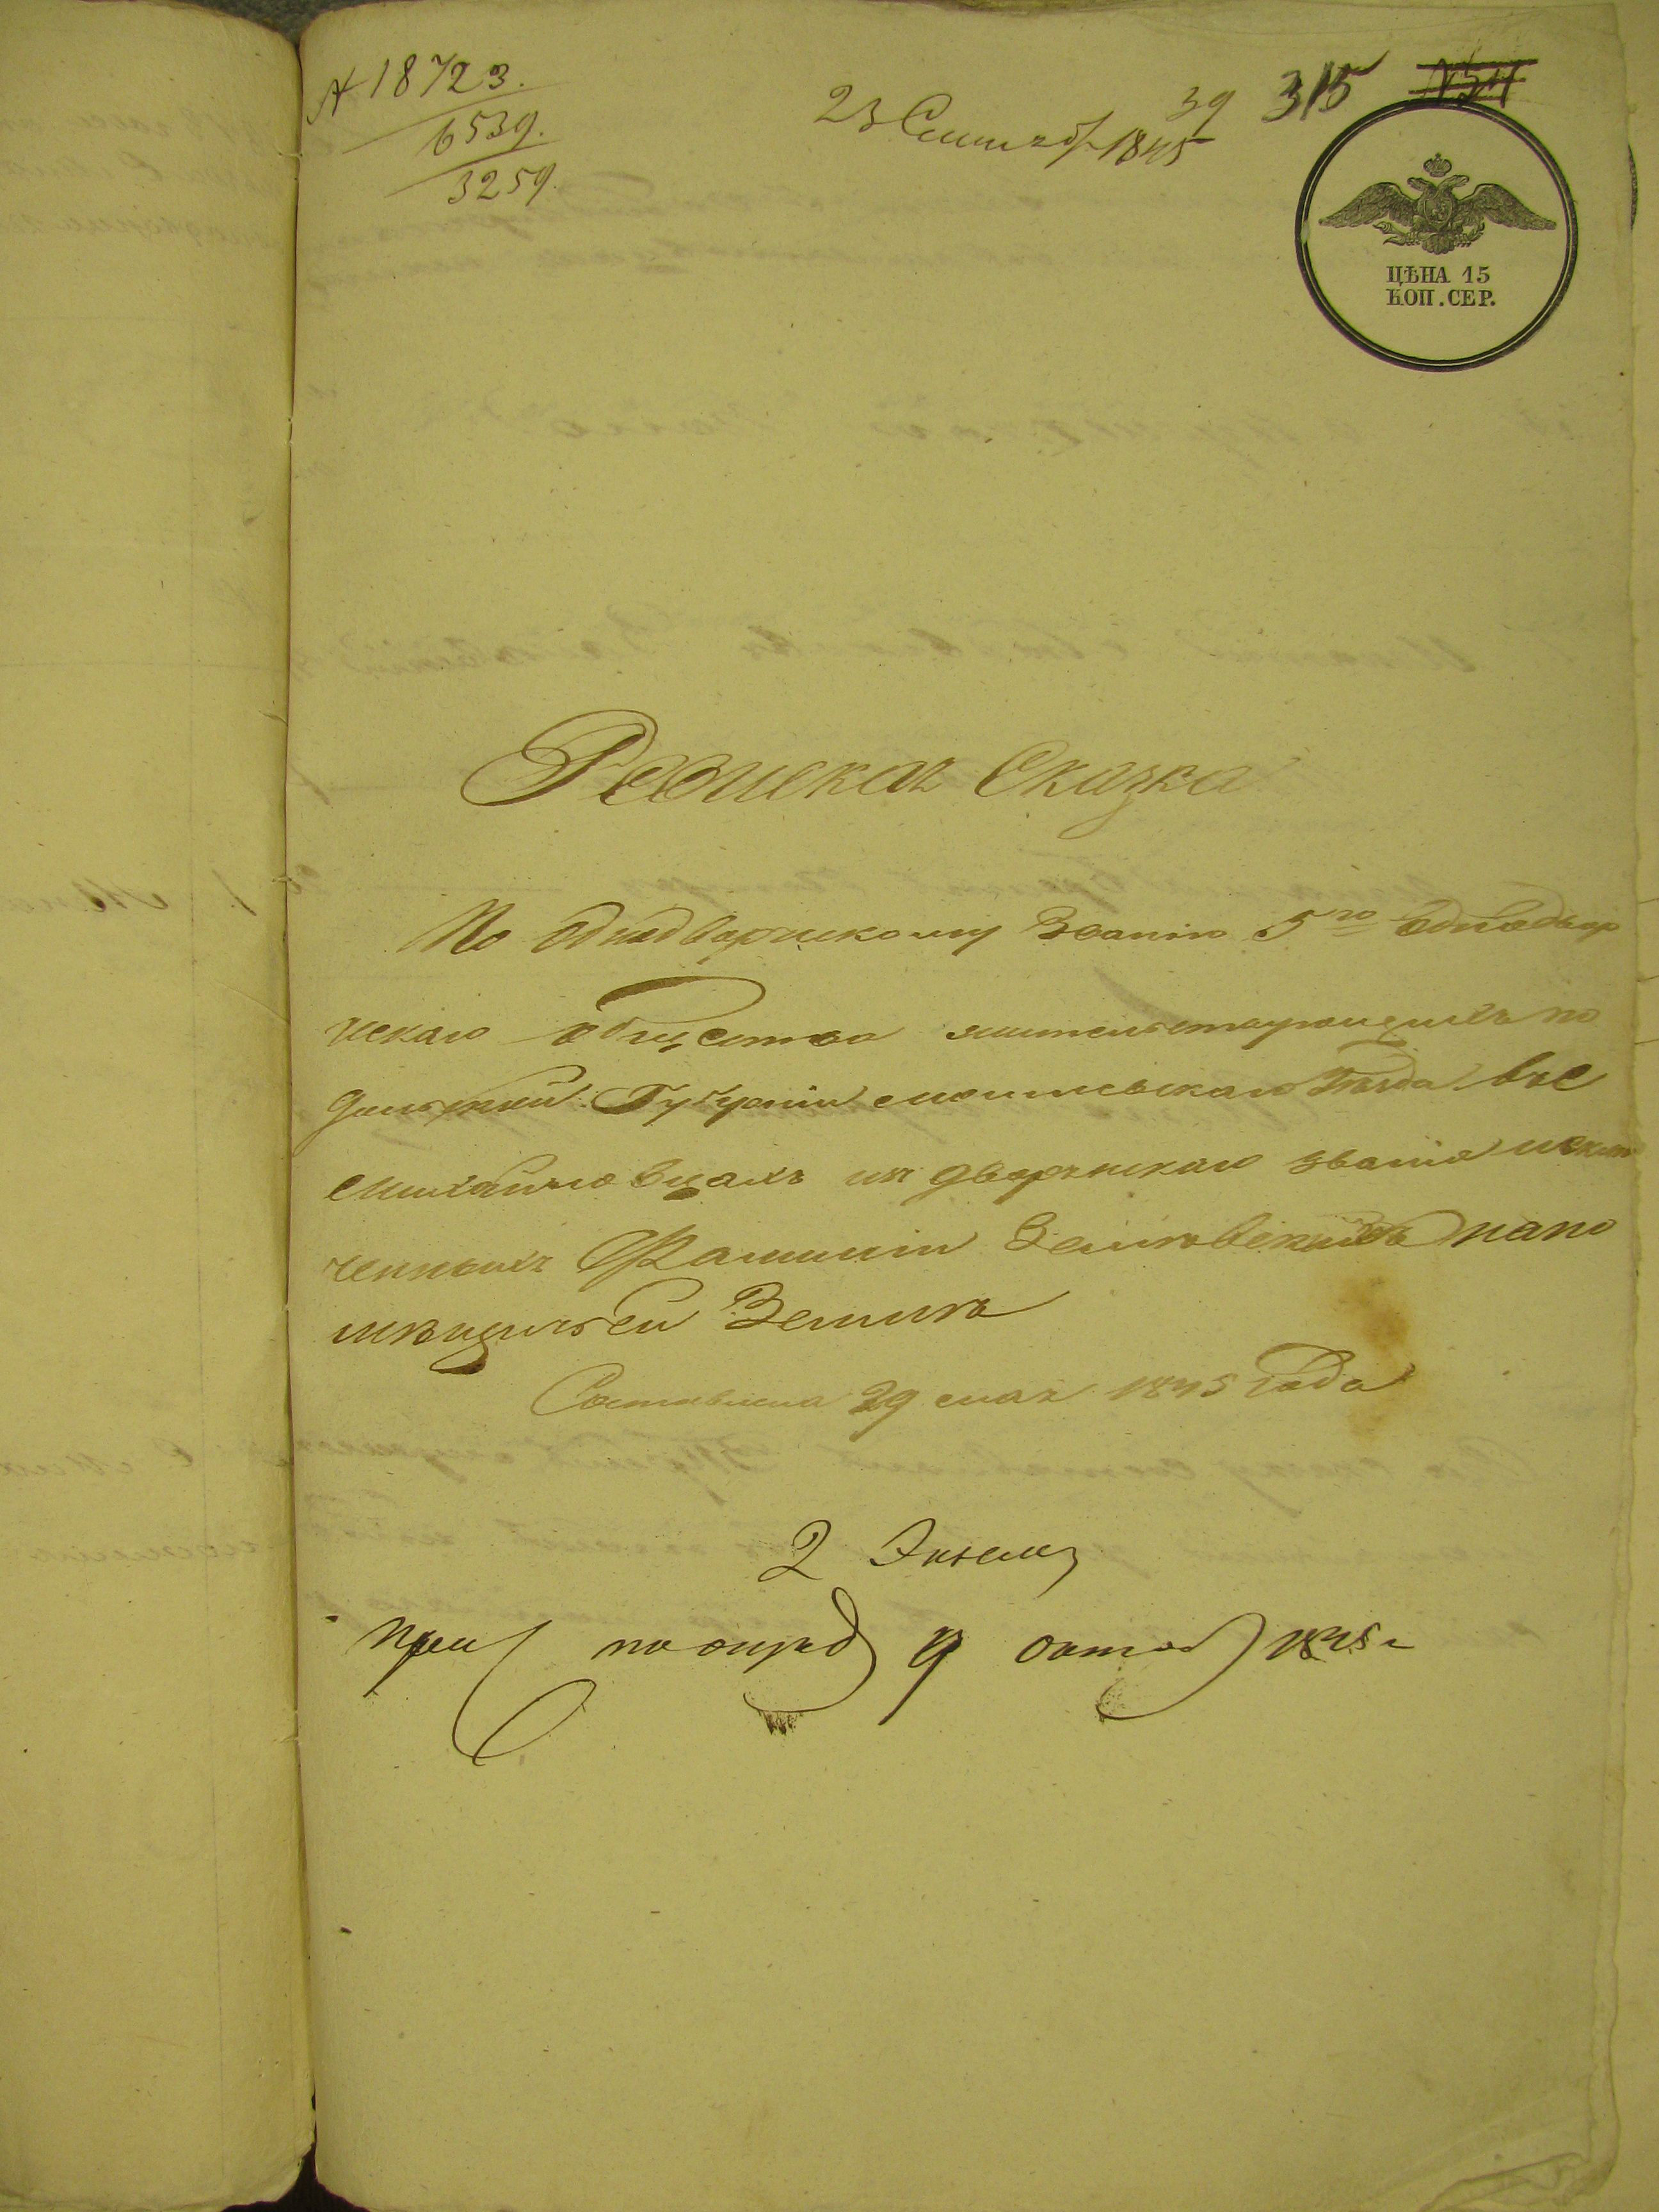 № 18723.
6539.
3259.
23 Сентяб 1845
39
315
ЦѢНА 15
КОП. СЕР.
Ревизская Сказка
По однодворческому Званію 5го однодвор
ческаго общества жительствующихъ По
дольской Губерніи могилевскаго Уѣзда все
михайловцахъ изъ дворянскаго званія исклю
ченныхъ Фамиліи напо
мѣщичьей Земли
Составлена 29 мая 1845 года
2 Экзем
по опред 9 октяб 1845 г